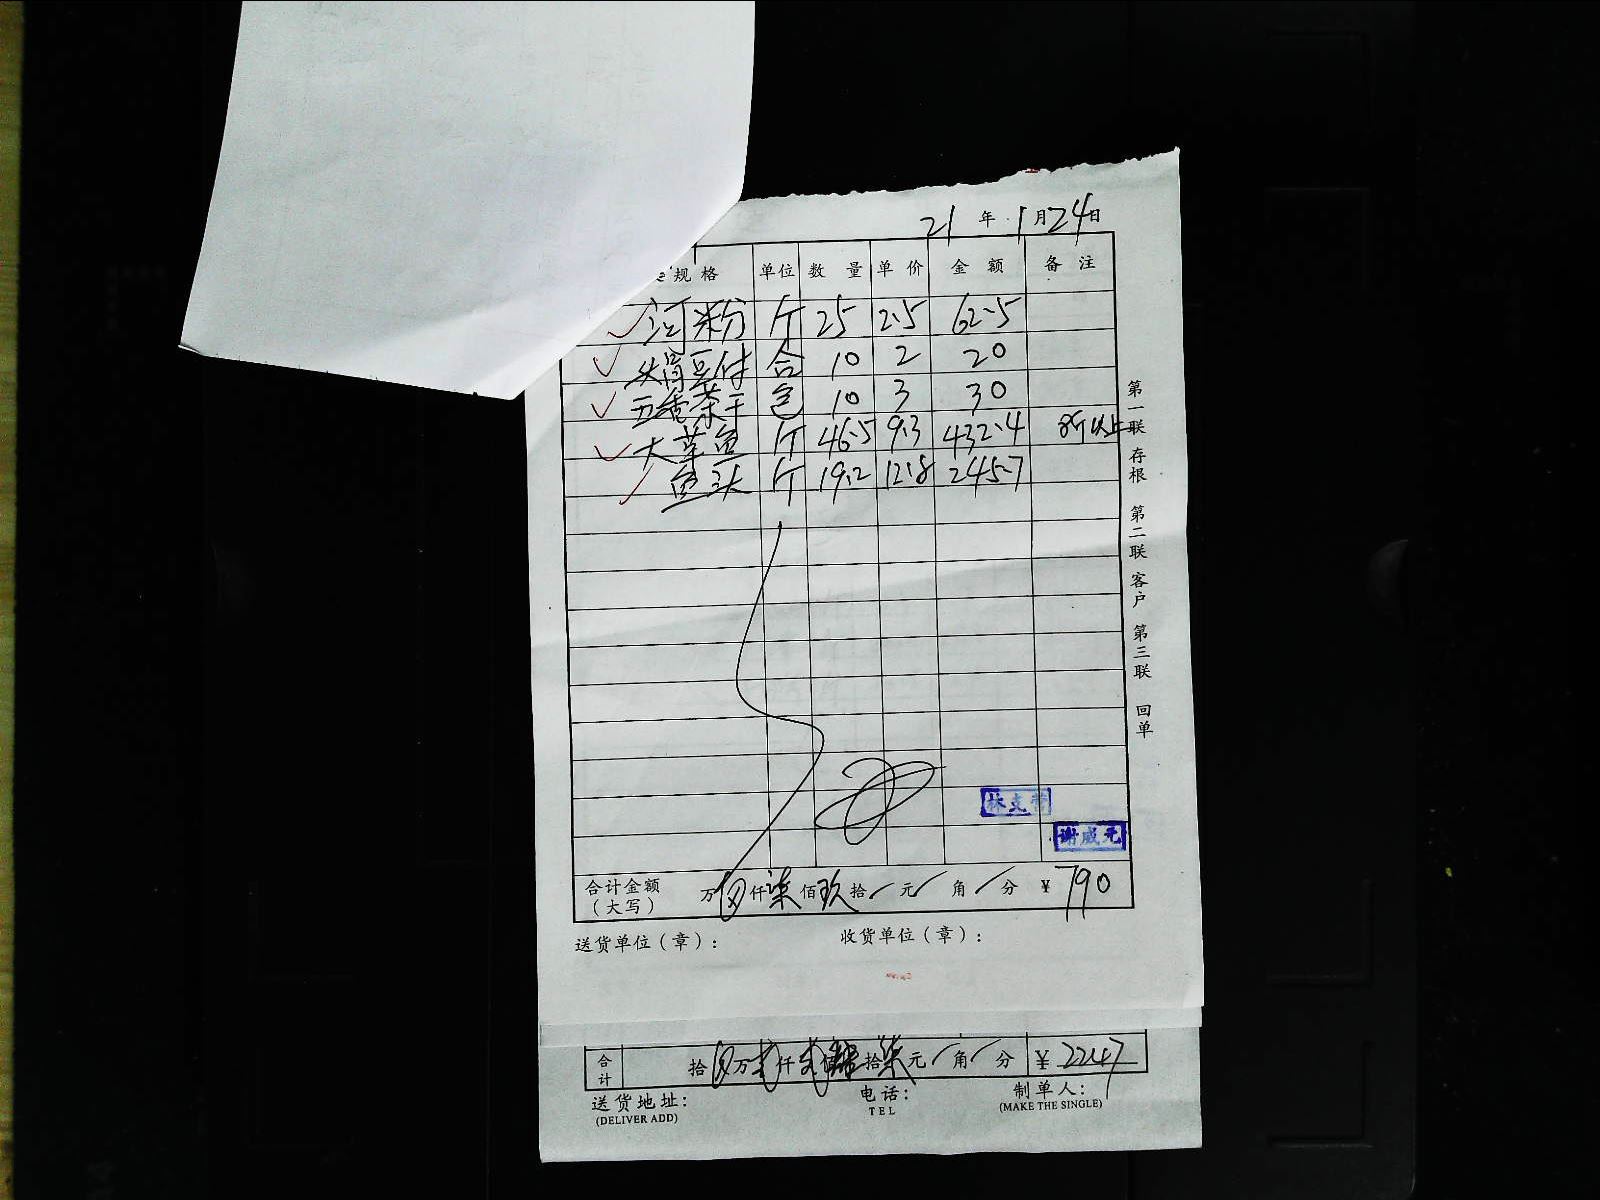 21 年 1 月 24 日
规格 单位 数量 单价 金额 备注
河粉 斤 25 2.5 62.5
豆付 合 10 2 20
五香茶干 包 10 3 30
大草鱼 斤 46.5 9.3 432.4 8斤以上
鱼头 斤 19.2 12.8 245.7
第一联 存根 第二联 客户 第三联 回单
谢咸元
合计金额 万 仟 柒 佰 玖 拾 / 元 / 角 / 分 ¥ 790
(大写)
送货单位(章): 收货单位(章):
合计 拾 万 贰 仟 贰 佰 肆 拾 柒 元 / 角 / 分 ¥ 2247
送货地址: 电话: 制单人:
(DELIVER ADD) TEL (MAKE THE SINGLE)